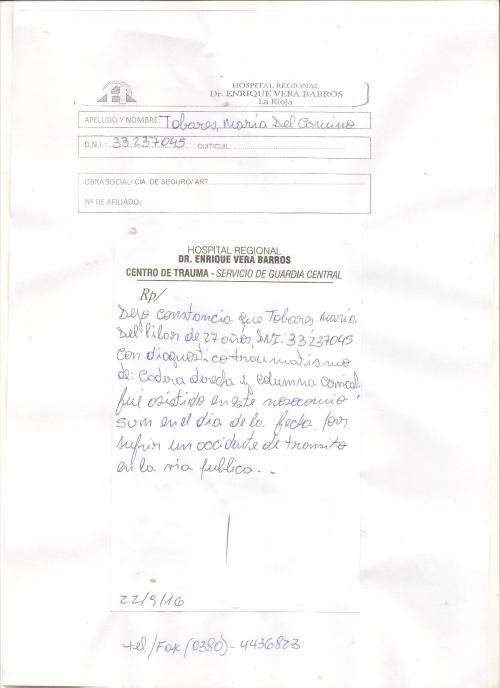 HOSPITAL REGIONAL
Dr. ENRIQUE VERA BARROS
La Rioja
APELLIDO Y NOMBRE: Tobares, María Del Camino
D.N.I.: 33237045 CUIT/CUIL:
OBRA SOCIAL/ CIA. DE SEGURO/ ART
Nº DE AFILIADO:
HOSPITAL REGIONAL
DR. ENRIQUE VERA BARROS
CENTRO DE TRAUMA - SERVICIO DE GUARDIA CENTRAL
Rp/
Dejo constancia que Tobares María
Del Pilar de 27 años, DNI: 33237045
con diagnostico traumatismo
de: Cadera derecha y columna cervical
fué asistido en este nosocomio
en el día de la fecha por
sufrir un accidente de transito
en la via publica.
22/9/16
tel/Fax (0380)-4436823